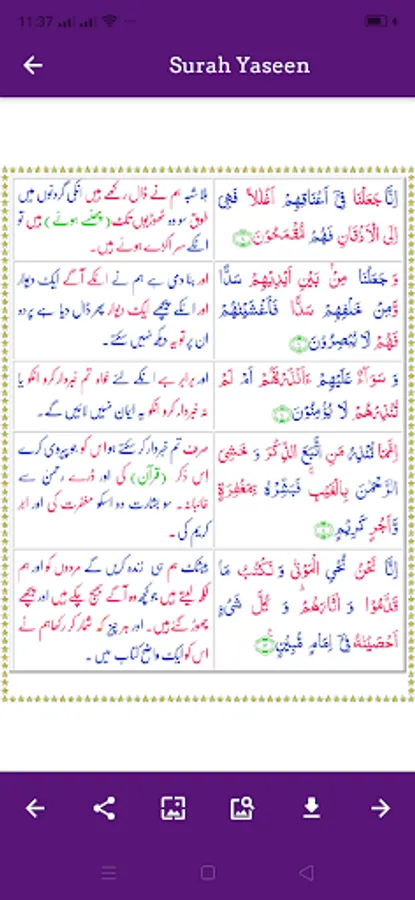 11:37
Surah Yaseen
اِنَّا جَعَلْنَا فِیْۤ اَعْنَاقِهِمْ اَغْلٰلًا فَهِیَ
اِلَی الْاَذْقَانِ فَهُمْ مُّقْمَحُوْنَ
بلا شبہ ہم نے ڈال رکھے ہیں انکی گردنوں میں
طوق سو وہ ٹھوڑیوں تک (پھنسے ہوئے) ہیں تو
انکے سر اکڑے ہوئے ہیں۔
وَ جَعَلْنَا مِنْۢ بَیْنِ اَیْدِیْهِمْ سَدًّا
وَّمِنْ خَلْفِهِمْ سَدًّا فَاَغْشَیْنٰهُمْ
فَهُمْ لَا یُبْصِرُوْنَ
اور بنا دی ہے ہم نے انکے آگے ایک دیوار
اور انکے پیچھے ایک دیوار پھر ڈال دیا ہے پردہ
ان پر تو یہ دیکھ نہیں سکتے۔
وَ سَوَآءٌ عَلَیْهِمْ ءَاَنْذَرْتَهُمْ اَمْ لَمْ
تُنْذِرْهُمْ لَا یُؤْمِنُوْنَ
اور برابر ہے انکے لئے خواہ تم خبردار کرو انکو یا
نہ خبردار کرو انکو یہ ایمان نہیں لائیں گے۔
اِنَّمَا تُنْذِرُ مَنِ اتَّبَعَ الذِّكْرَ وَ خَشِیَ
الرَّحْمٰنَ بِالْغَیْبِ ۚ فَبَشِّرْهُ بِمَغْفِرَةٍ
وَّاَجْرٍ كَرِیْمٍ
صرف تم خبردار کر سکتے ہو اس کو جو پیروی کرے
اس ذکر (قرآن) کی اور ڈرے رحمٰن سے
غائبانہ۔ سو بشارت دو اسکو مغفرت کی اور اجر
کریم کی۔
اِنَّا نَحْنُ نُحْیِ الْمَوْتٰی وَ نَكْتُبُ مَا
قَدَّمُوْا وَ اٰثَارَهُمْ ؕ وَ كُلَّ شَیْءٍ
اَحْصَیْنٰهُ فِیْۤ اِمَامٍ مُّبِیْنٍ
بیشک ہم ہی زندہ کریں گے مردوں کو اور ہم
لکھ لیتے ہیں جو کچھ وہ آگے بھیج چکے ہیں اور پیچھے
چھوڑ گئے ہیں۔ اور ہر چیز کہ شمار کر رکھا ہم نے
اس کو ایک واضح کتاب میں۔